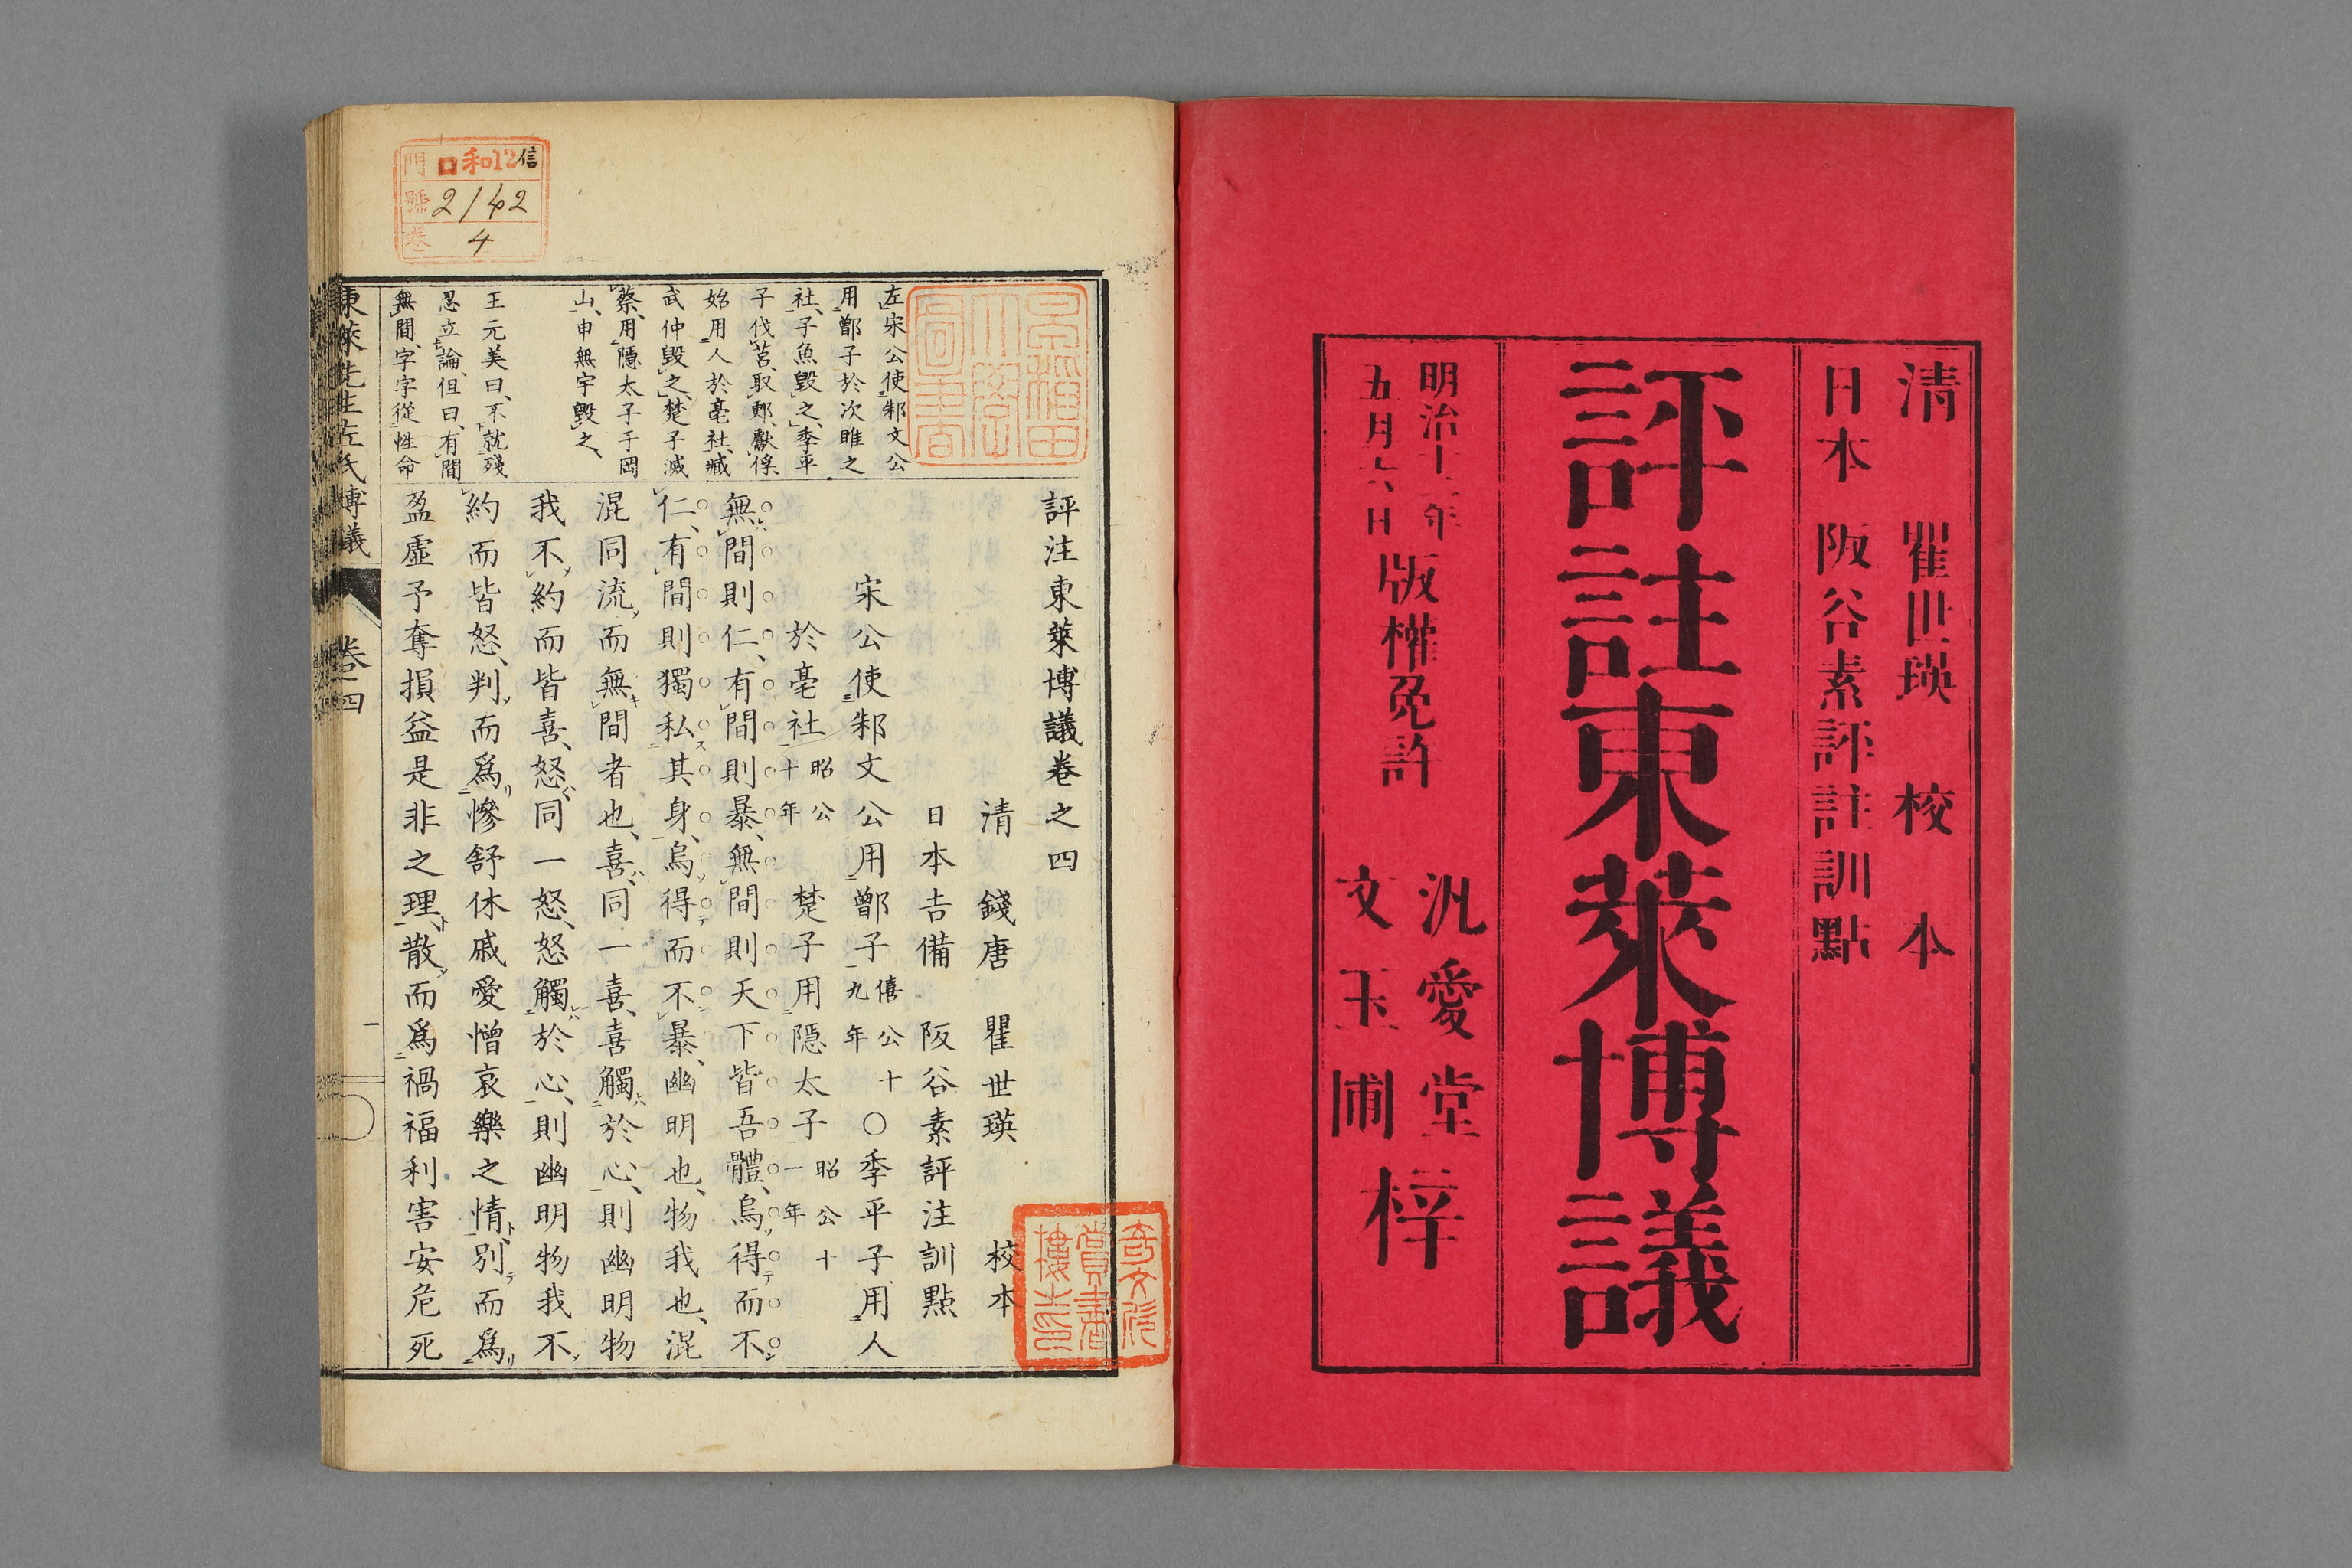 清 瞿世瑛 校本
日本 阪谷素評註訓點
評註東萊博議
明治十二年
五月六日
版權免許
汎愛堂
文玉圃
梓
評注東萊博議卷之四
清 錢唐 瞿世瑛 校本
日本吉備 阪谷素評注訓點
宋公使邾文公用鄫子僖公十九年○季平子用人
於亳社昭公十年 楚子用隱太子昭公十一年
無間則仁、有間則暴、無間則天下皆吾體、烏得而不
仁、有間則獨私其身、烏得而不暴、幽明也、物我也、混
混同流、而無間者也、喜同一喜、喜觸於心、則幽明物
我不約而皆喜、怒同一怒、怒觸於心、則幽明物我不
約而皆怒、判而爲慘舒休戚愛憎哀樂之情、別而爲
盈虛予奪損益是非之理、散而爲禍福利害安危死
左宋公使邾文公
用鄫子於次睢之
社、子魚毀之、季平
子伐莒、取郠、獻俘、
始用人於亳社、臧
武仲毀之、楚子滅
蔡、用隱太子于岡
山、申無宇毀之、
王元美曰、不就殘
忍立論、但曰、有間
無間、字字從性命
東萊先生左氏博議 卷四 一
門 口和12信
號 2142
卷 4
早稲田大學圖書